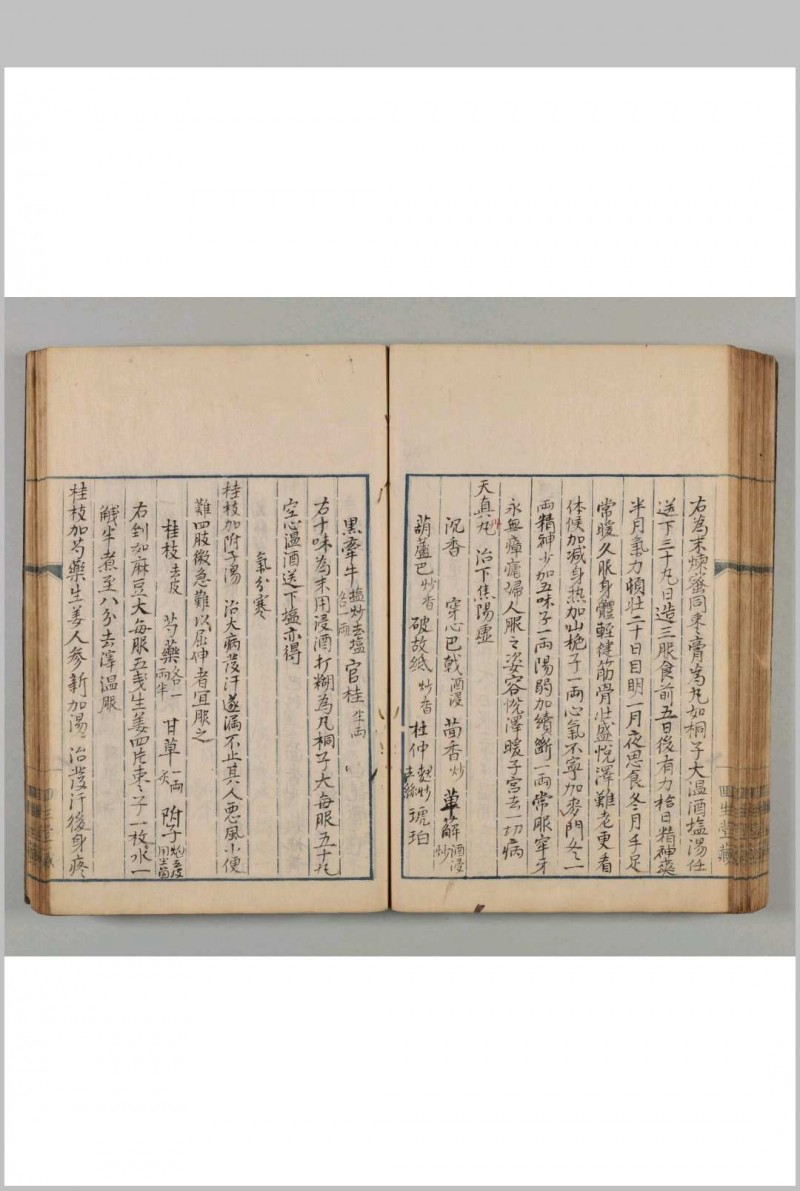 右為末煉蜜同棗膏為丸如桐子大溫酒塩湯任
送下三十丸日造三服食前五日後有力拾日精神爽
半月氣力頓壯二十日目明一月夜思食冬月手足
常暖久服身體輕健筋骨壯盛悅澤難老更看
体候加減身热加山栀子一両心氣不寧加麥門冬一
両精神少加五味子一両陽弱加續斷一両常服牢牙
永無瘴瘧婦人服之姿容悅澤暖子宮去一切病
天真丸 治下焦陽虛
沉香 穿心巴戟酒浸 茴香炒 萆解酒浸炒
葫蘆巴炒香 破故紙炒香 杜仲麩炒去絲 琥珀
黒牽牛塩炒去塩各一両 官桂半両
右十味為末用浸酒打糊為丸桐子大每服五十丸
空心溫酒送下塩亦得
氣分寒
桂枝加附子湯 治大病發汗遂漏不止其人惡風小便
難四肢微急難以屈伸者宜服之
桂枝去皮 芍藥各一両半 甘草一両炙 附子炮去皮用半箇
右剉如麻豆大每服五戔生姜四片棗子一枚水一
觧半煮至八分去滓溫服
桂枝加芍藥生姜人参新加湯 治發汗後身疼
回生堂藏